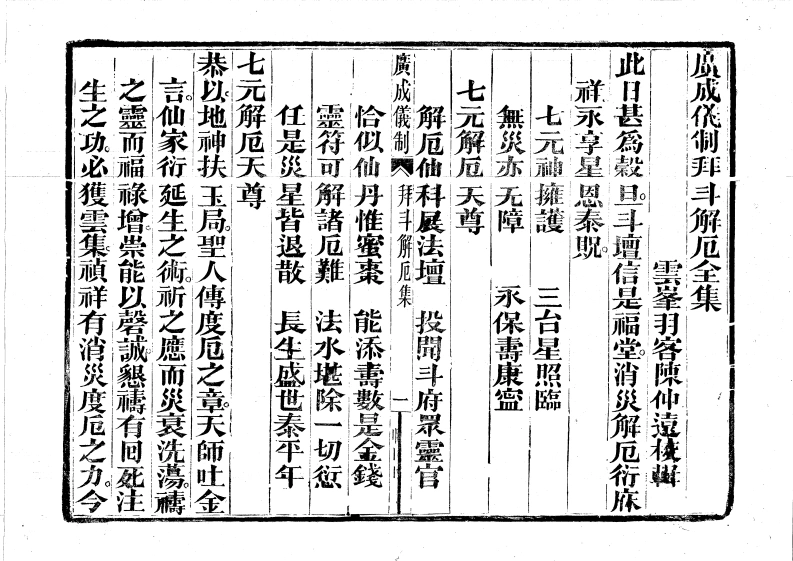 廣成儀制拜斗解厄全集
雲峯羽客陳仲遠校輯
此日甚爲穀旦。斗壇信是福堂。消災解厄衍庥
祥。永享星恩泰貺。
七元神擁護　三台星照臨
無災亦无障　永保壽康寍
七元解厄天尊
解厄仙科展法壇　投聞斗府眾靈官
廣成儀制　拜斗解厄集　一
恰似仙丹惟蜜棗　能添壽數是金錢
靈符可解諸厄難　法水堪除一切愆
任是災星皆退散　長生盛世泰平年
七元解厄天尊
恭以。地神扶玉局。聖人傳度厄之章。天師吐金
言。仙家衍延生之術。祈之應而災衰洗蕩。禱
之靈而福祿增崇。能以磬誠。懇禱有回死注
生之功。必獲雲集。禎祥有消災度厄之力。今